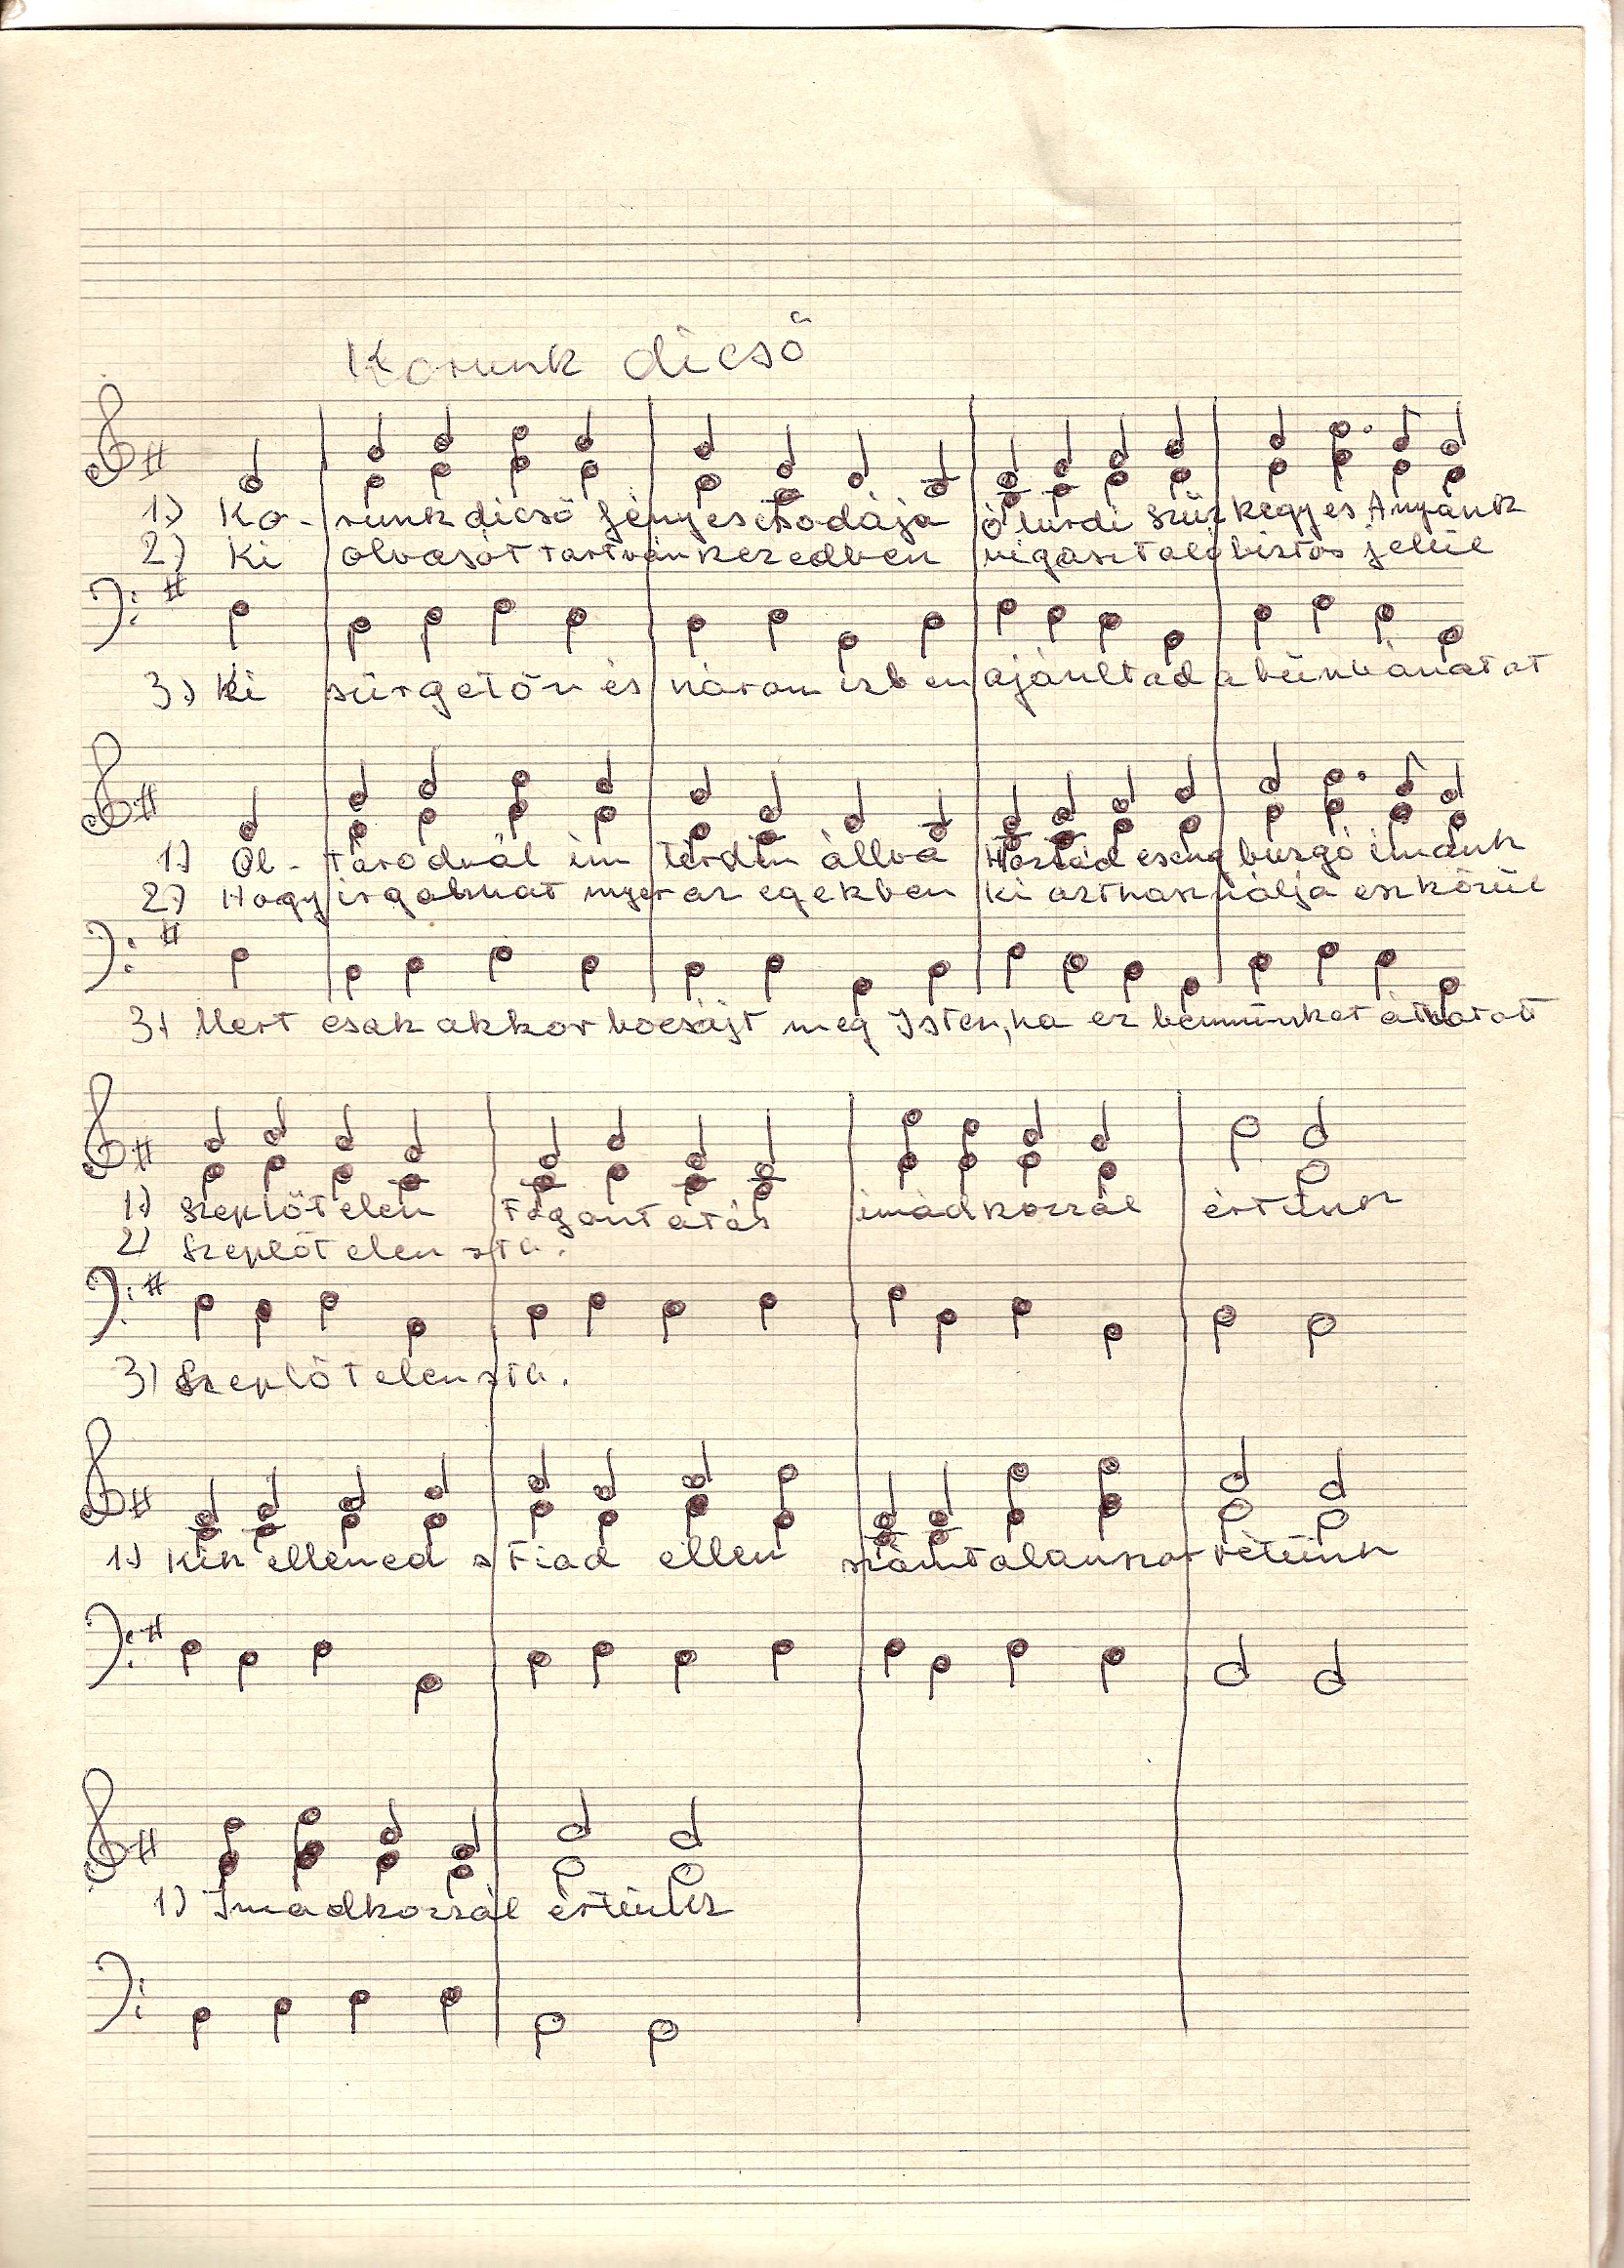 Korunk dicső
1.) Ko- runk dicső fényes csodája ó lurdi szűz kegyes Anyánk
2.) Ki olvasót tartván kezedben vigasztaló biztos jelül
3.) Ki sürgetőn és három izben ajánltad a bünbánatot
1.) Ol- tárodnál im térden állva Hozzád eseng buzgó imánk
2.) Hogy irgalmat nyer az egekben ki azt használja eszközül
3.) Mert csak akkor bocsájt meg Isten, ha ez bennünket áthatott
1.) Szeplőtelen fogantatás imádkozzál értünk
2) Szeplőtelen stb.
3) Szeplőtelen stb.
1.) Kik ellened s Fiad ellen számtalanszor vétünk
1.) Imádkozzál értünk